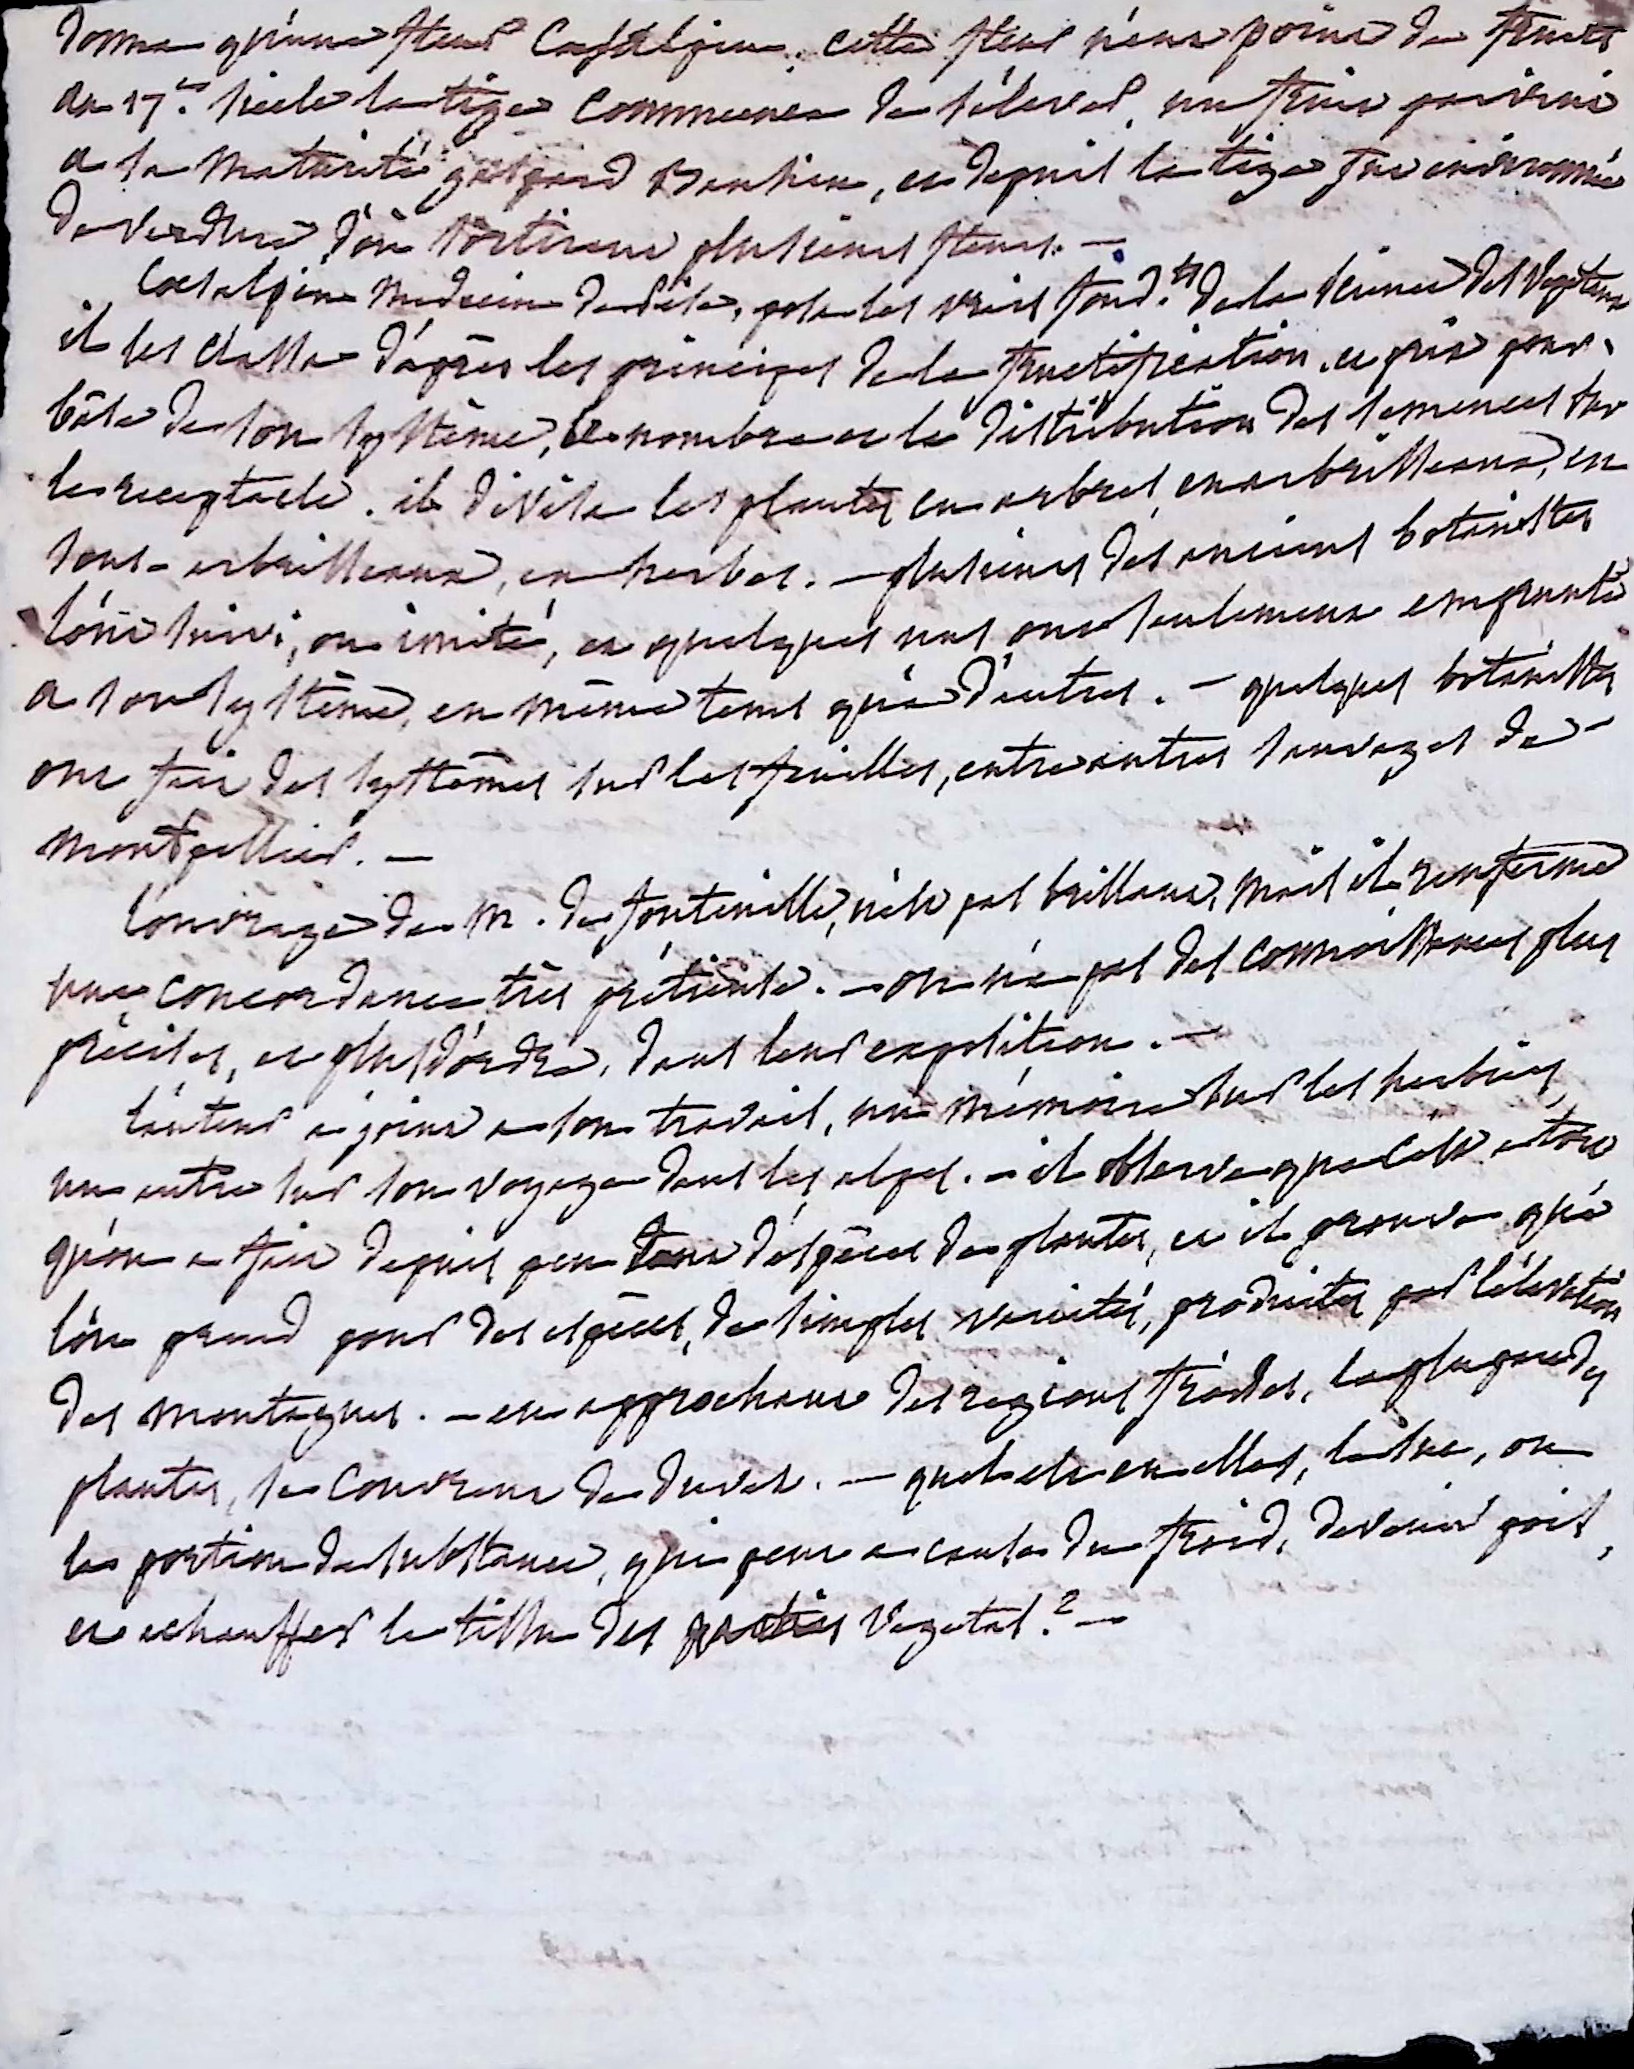 donna qu'une fleur Caesalpin. cette fleur n'eut point de fruits
au 17.e siecle la tige commença de s'élever, un fruit parvint
a sa maturité gaspard Bauhin, et depuis la tige fut environnée
de verdure d'où sortirent plusieurs fleurs. —
Caesalpin medecin de pise, posa les vrais fond.ts de la science des vegetaux
il les classa d'après les principes de la fructification, et prit pour
bâse de son système, le nombre et la distribution des semences sur
le receptacle. il divisa les plantes en arbres, en arbrisseaux, en
sous-arbrisseaux, en herbes. — plusieurs des anciens botanistes
l'ont suivi, ou imité, et quelques uns ont seulement emprunté
a son système, en même tems qu'à d'autres. — quelques botanistes
ont fait des systèmes sur les feuilles, entre autres sauvages de
montpellier. —
l'ouvrage de M. de fontenille, n'est pas brillant, mais il renferme
une concordance très prétieuse. — on n'a pas des connoissances plus
précises, et plus d'ordre, dans leur exposition. —
l'auteur a joint a son travail, un mémoire sur les herbiers,
un autre sur son voyage dans les alpes. — il observe que c'est a tort
qu'on a fait depuis peu tant d'espèces de plantes, et il prouve que
l'on prend pour des espèces, de simples varietés, produites par l'élevation
des montagnes. — en approchant des regions froides, la plupart des
plantes, se couvrent de duvet. — quel est en elles, le suc, ou
la portion de substance, qui peut a cause du froid, devenir poil,
et echauffer le tissu des vegetal? —